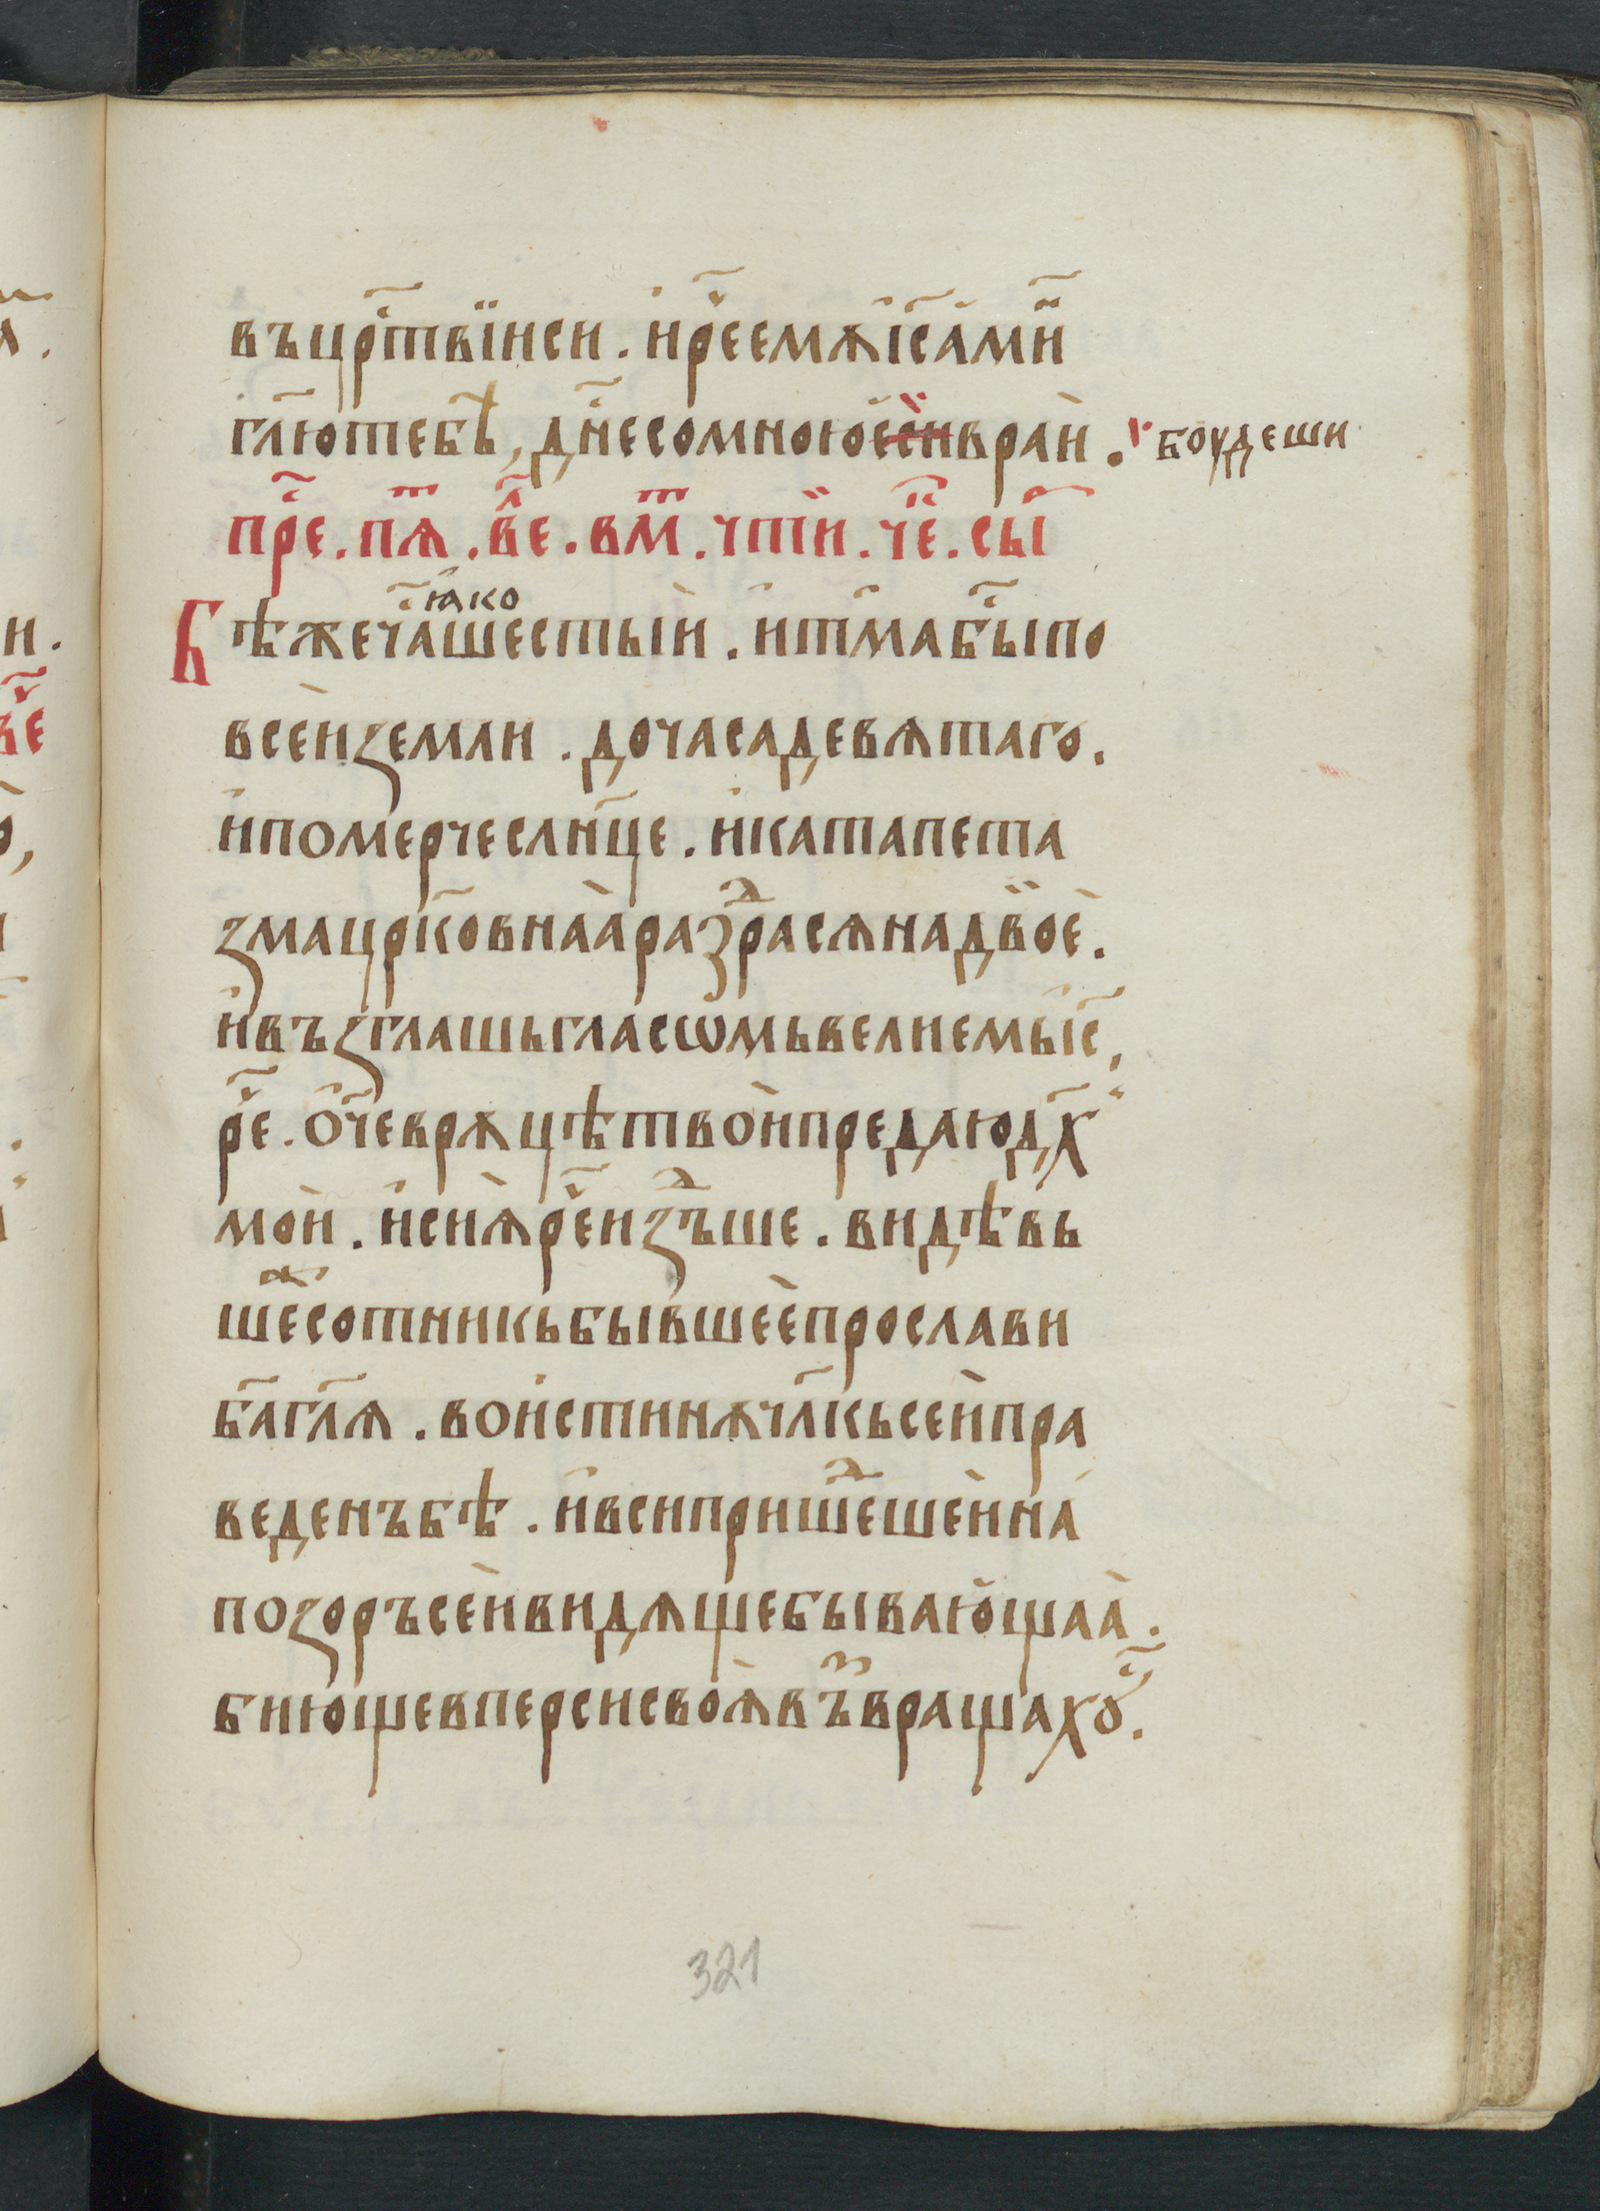 въцр҇твїиси . и҆ре҇емѫі҆с҃а҆ми҃
гл҃ютебѣ , дн҃есомноюе҆сивраи . боудеши
пре҇ . пѧ҃т . ве҃л . вм҃т . чтїи . че҃т . сы҃
Бѣжеча҇ꙗкошестыи . и҆тм҃абы҇по
всеиꙁемли . дочасадевѧтаго .
и҆померчеслн҃це . и҆катапета
ꙁмацрк҃овнаараздрасѧнадвое .
и҆въꙁглашьгласѡмьвелиемьі҆с҃ ,
ре҇ . ѻч҃еврѫцѣтвоипредаюдх҃ъ
мои . и҆сиѧре҇иꙁдъше . видѣвь
шежесотникьбывшеепрослави
ба҃гл҃ѧ . воистинѫчлк҃ьсеипра
веденъбѣ . и҆всипришедшеина
поꙁоръсеивидѧщебывающаа .
биющевперсисвоѧвъꙁвращахꙋ҇ .
321